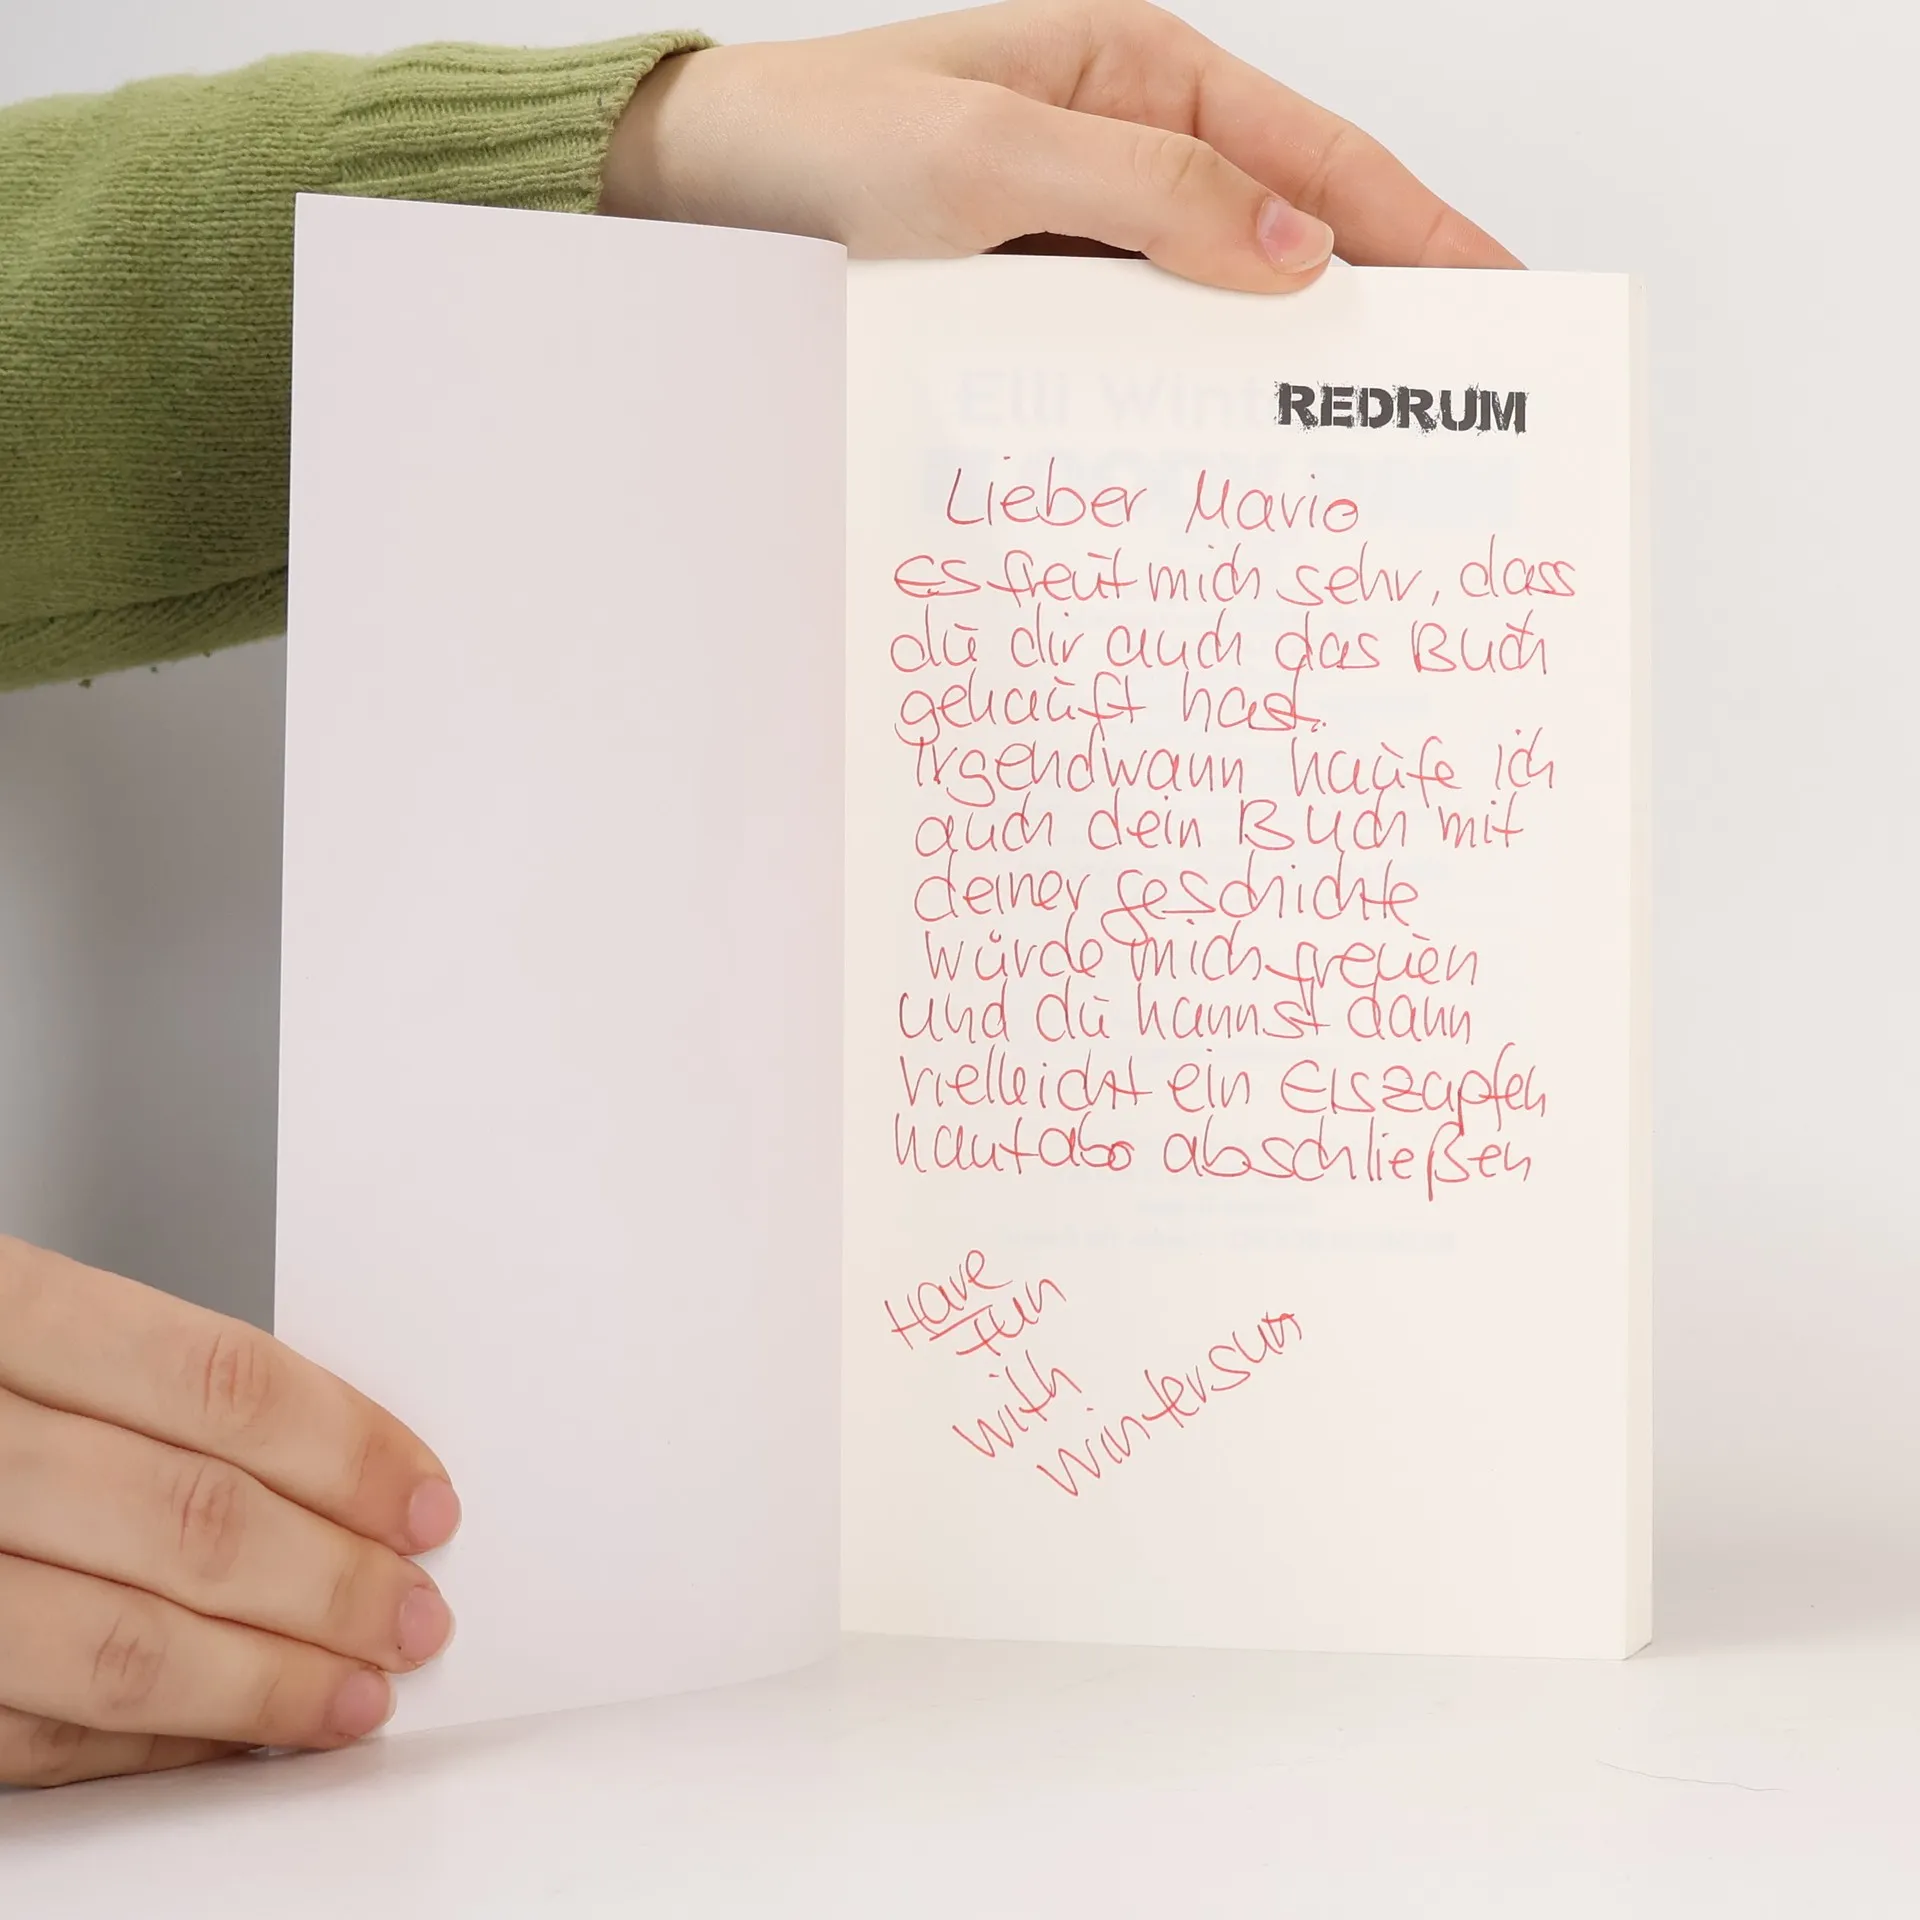 REDRUM
Lieber Mario
es freut mich sehr, dass
du dir auch das Buch
gekauft hast.
Irgendwann kaufe ich
auch dein Buch mit
deiner Geschichte
würde mich freuen
und du kannst dann
vielleicht ein Eiszapfen
kautabo abschließen
Have
fun
with
Wintersun